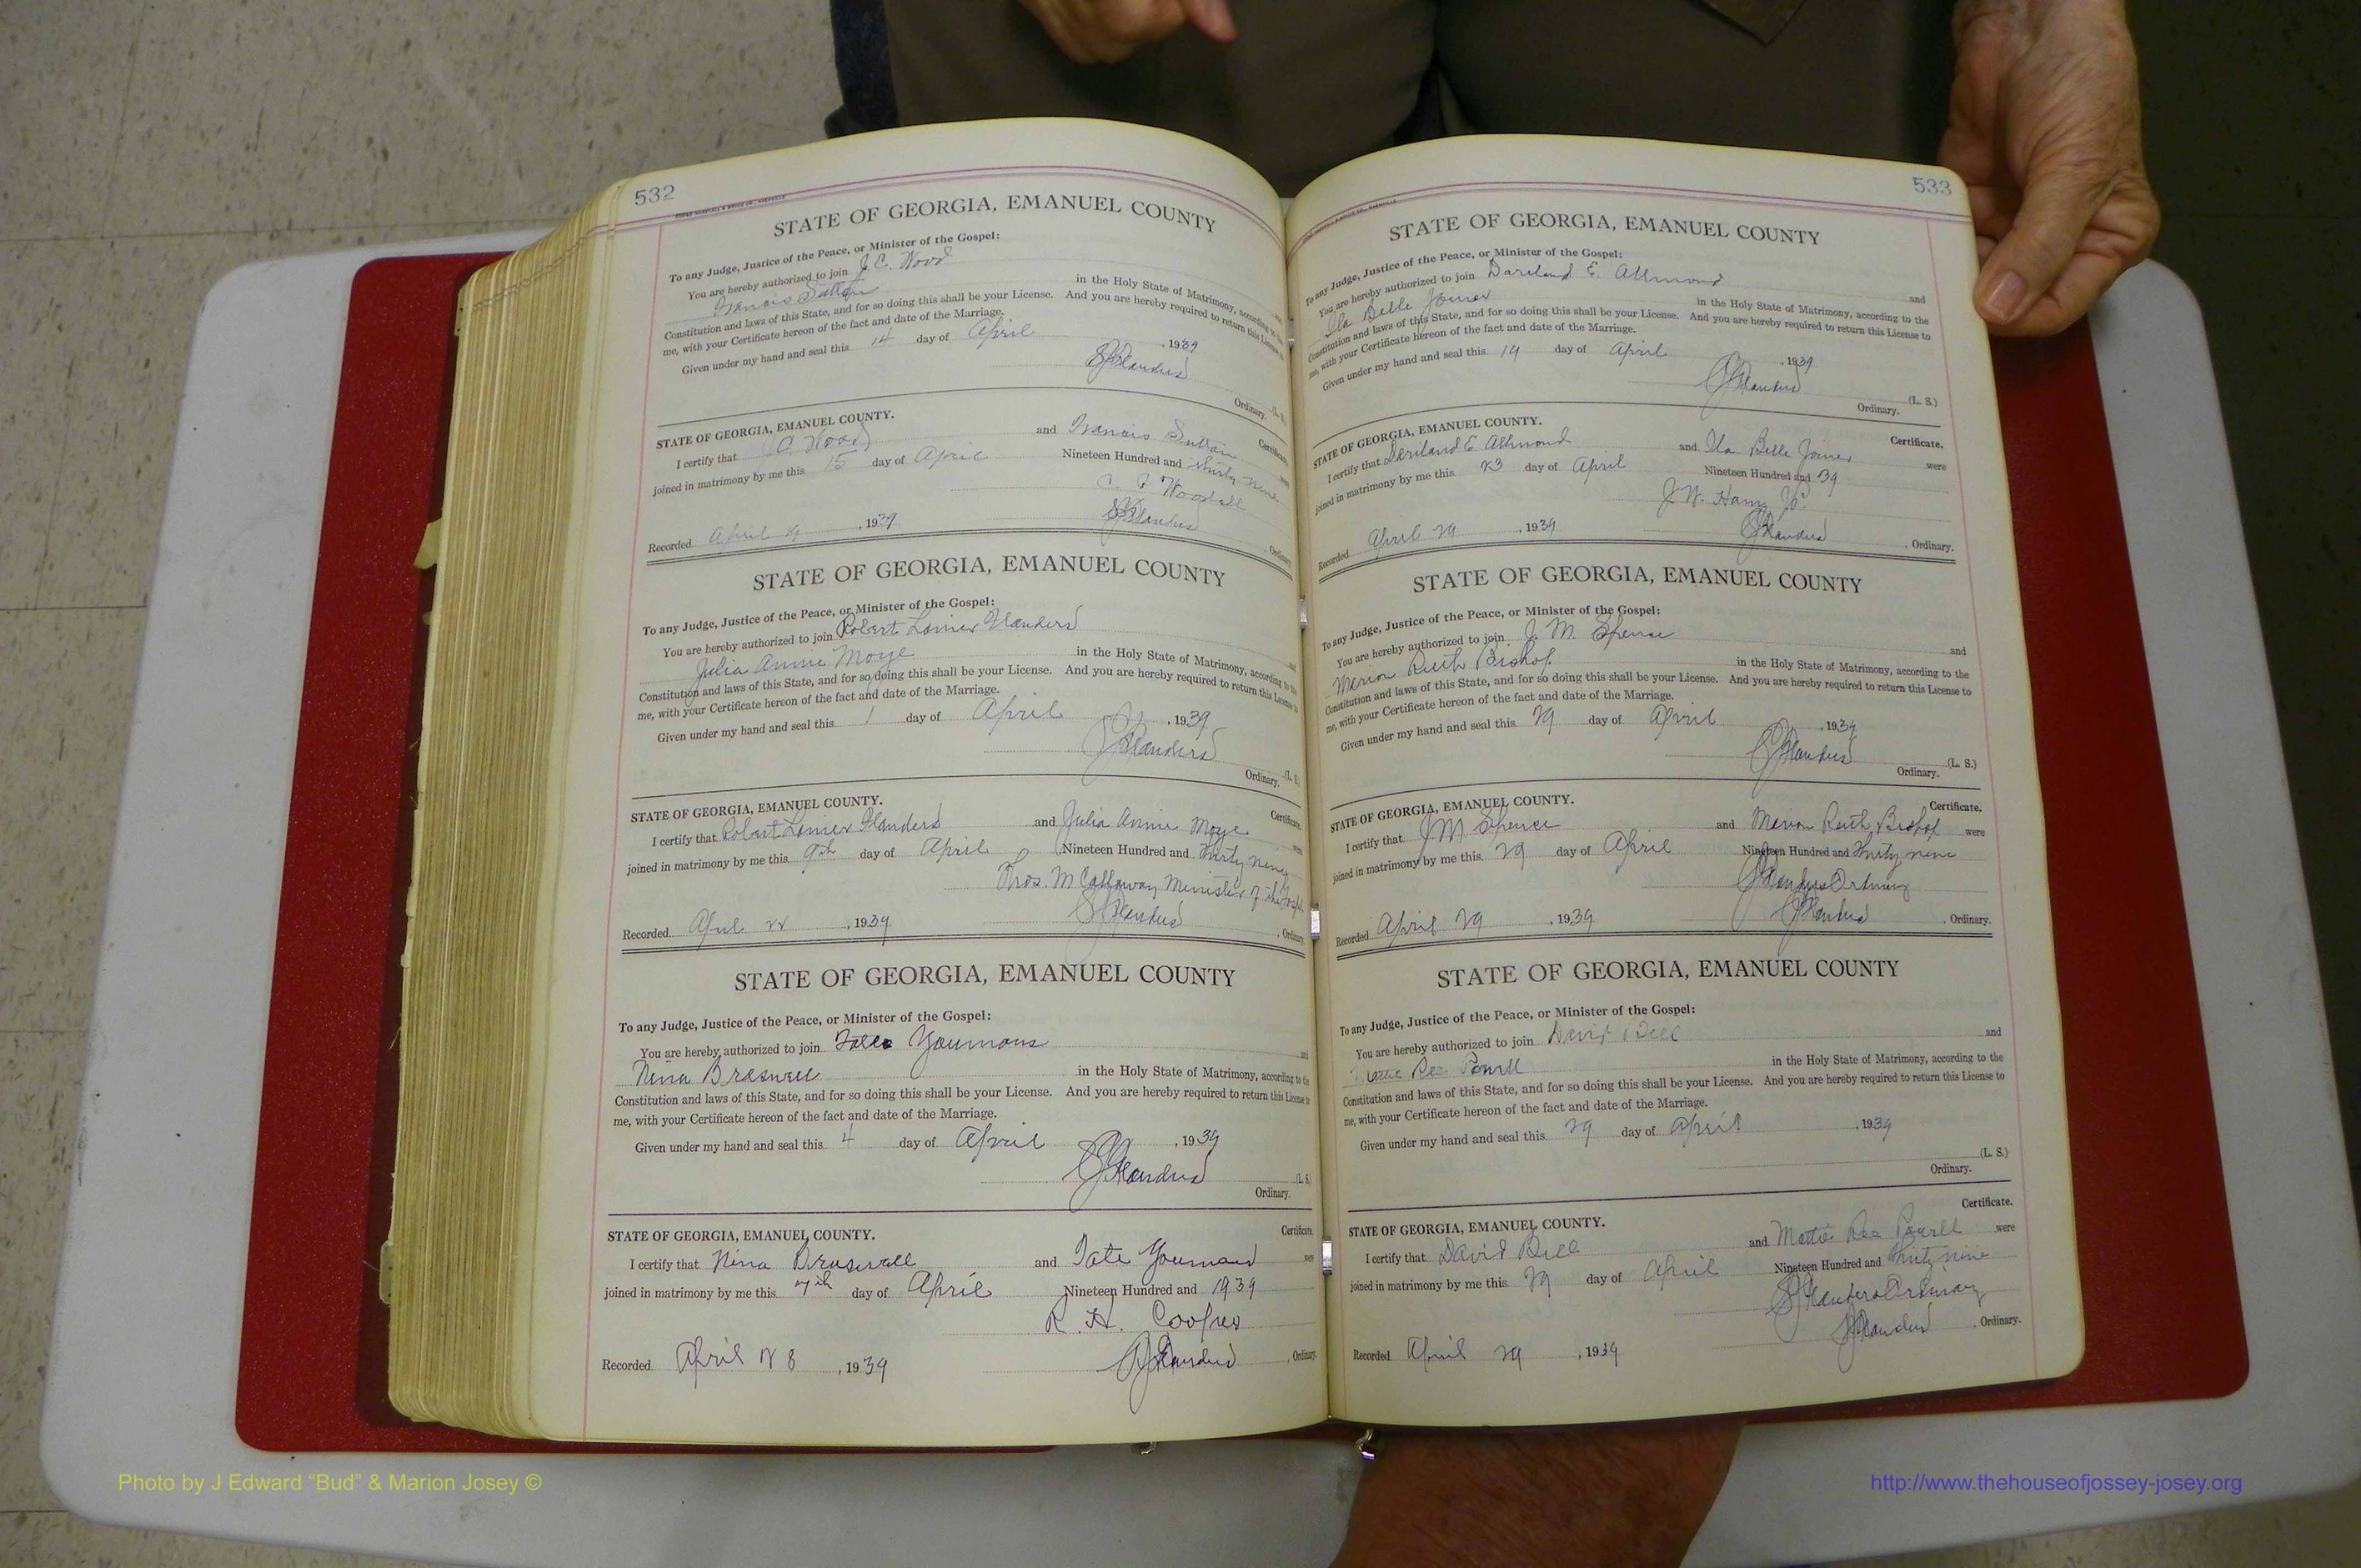 532
STATE OF GEORGIA, EMANUEL COUNTY
To any Judge, Justice of the Peace, or Minister of the Gospel:
You are hereby authorized to join J. C. Wood and
Francis Sutton in the Holy State of Matrimony, according to the
Constitution and laws of this State, and for so doing this shall be your License. And you are hereby required to return this License to
me, with your Certificate hereon of the fact and date of the Marriage.
Given under my hand and seal this 14 day of April, 1939
Flanders
Ordinary. (L. S.
STATE OF GEORGIA, EMANUEL COUNTY. Certificate.
I certify that J C. Wood and Francis Sutton were
joined in matrimony by me this 15 day of April Nineteen Hundred and Thirty nine
Woodall
Recorded April 19, 1939 Flanders, Ordinary
STATE OF GEORGIA, EMANUEL COUNTY
To any Judge, Justice of the Peace, or Minister of the Gospel:
You are hereby authorized to join Robert Lanier Flanders and
Julia Annie Moye in the Holy State of Matrimony, according to the
Constitution and laws of this State, and for so doing this shall be your License. And you are hereby required to return this License
me, with your Certificate hereon of the fact and date of the Marriage.
Given under my hand and seal this 1 day of April, 1939
Flanders
Ordinary. (L. S.
STATE OF GEORGIA, EMANUEL COUNTY. Certificate.
I certify that Robert Lanier Flanders and Julia Annie Moye were
joined in matrimony by me this 9th day of April Nineteen Hundred and Thirty nine
Thos. M Callaway Minister of the Gospel
Recorded April 22, 1939 Flanders, Ordinary
STATE OF GEORGIA, EMANUEL COUNTY
To any Judge, Justice of the Peace, or Minister of the Gospel:
You are hereby authorized to join Youmans and
Nina Braswell in the Holy State of Matrimony, according to the
Constitution and laws of this State, and for so doing this shall be your License. And you are hereby required to return this License to
me, with your Certificate hereon of the fact and date of the Marriage.
Given under my hand and seal this 4 day of April, 1939
Flanders (L. S.)
Ordinary.
STATE OF GEORGIA, EMANUEL COUNTY. Certificate.
I certify that Nina Braswell and Tate Youmans were
joined in matrimony by me this day of April Nineteen Hundred and 1939
R. H. Cooper
Recorded April 28, 1939 Flanders, Ordinary
533
STATE OF GEORGIA, EMANUEL COUNTY
To any Judge, Justice of the Peace, or Minister of the Gospel:
You are hereby authorized to join E. Allmond and
Ila Belle Joiner in the Holy State of Matrimony, according to the
Constitution and laws of this State, and for so doing this shall be your License. And you are hereby required to return this License to
me, with your Certificate hereon of the fact and date of the Marriage.
Given under my hand and seal this 19 day of April, 1939
Flanders (L. S.)
Ordinary.
STATE OF GEORGIA, EMANUEL COUNTY. Certificate.
I certify that E Allmond and Ila Belle Joiner were
joined in matrimony by me this 23 day of April Nineteen Hundred and 39
J. W.
Recorded April 29, 1939 Flanders, Ordinary.
STATE OF GEORGIA, EMANUEL COUNTY
To any Judge, Justice of the Peace, or Minister of the Gospel:
You are hereby authorized to join J. M. Spence and
Marion Ruth Bishop in the Holy State of Matrimony, according to the
Constitution and laws of this State, and for so doing this shall be your License. And you are hereby required to return this License to
me, with your Certificate hereon of the fact and date of the Marriage.
Given under my hand and seal this 29 day of April, 1939
Flanders (L. S.)
Ordinary.
STATE OF GEORGIA, EMANUEL COUNTY. Certificate.
I certify that J M Spence and Marion Ruth Bishop were
joined in matrimony by me this 29 day of April Nineteen Hundred and Thirty nine
Flanders Ordinary
Recorded April 29, 1939 Flanders, Ordinary.
STATE OF GEORGIA, EMANUEL COUNTY
To any Judge, Justice of the Peace, or Minister of the Gospel:
You are hereby authorized to join David Bell and
Mattie Ree Powell in the Holy State of Matrimony, according to the
Constitution and laws of this State, and for so doing this shall be your License. And you are hereby required to return this License to
me, with your Certificate hereon of the fact and date of the Marriage.
Given under my hand and seal this 29 day of April, 1939
(L. S.)
Ordinary.
STATE OF GEORGIA, EMANUEL COUNTY. Certificate.
I certify that David Bell and Mattie Ree Powell were
joined in matrimony by me this 29 day of April Nineteen Hundred and thirty nine
Flanders Ordinary
Recorded April 29, 1939 Flanders, Ordinary.
Photo by J Edward “Bud” & Marion Josey ©
http://www.thehouseofjossey-josey.org